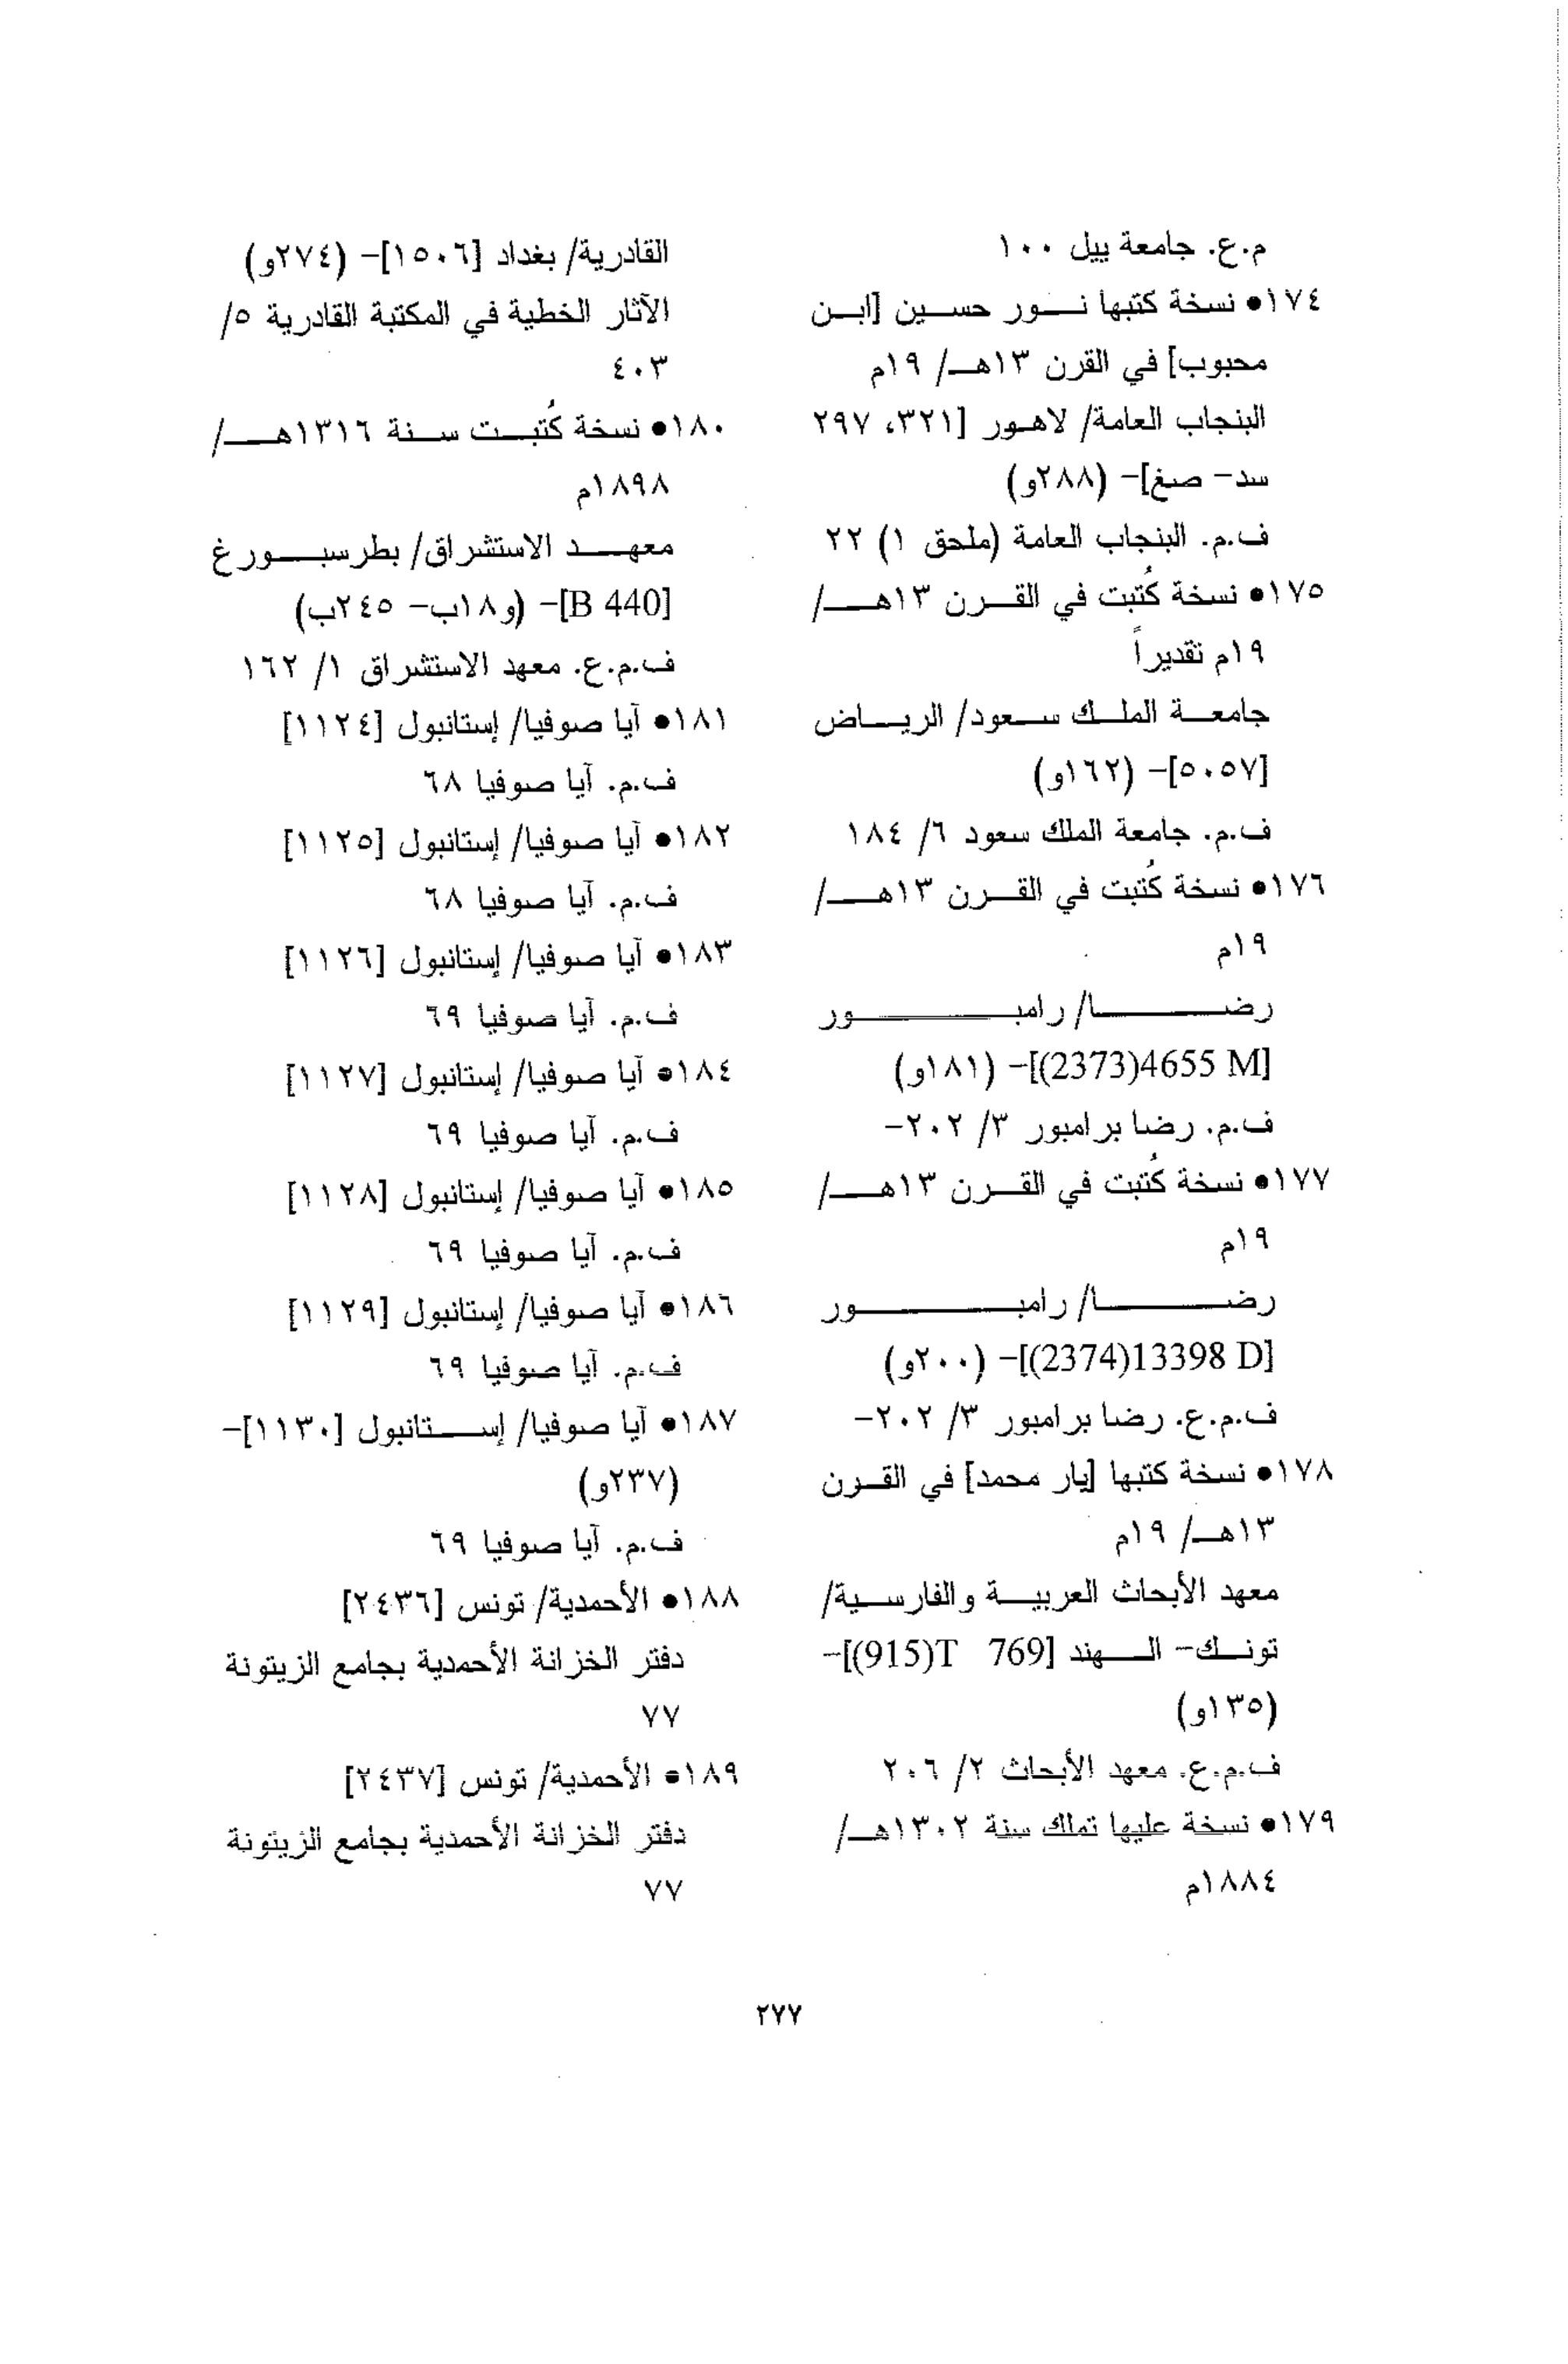 م.ع. جامعة ييل ١٠٠
١٧٤• نسخة كتبها نور حسين [ابن
محبوب] في القرن ١٣هـ/ ١٩م
البنجاب العامة/ لاهور [٣٢١، ٢٩٧
سد- صغ]- (٢٨٨و)
ف.م. البنجاب العامة (ملحق ١) ٢٢
١٧٥• نسخة كُتبت في القرن ١٣هـ/
١٩م تقديراً
جامعة الملك سعود/ الرياض
[٥٠٥٧]- (١٦٢و)
ف.م. جامعة الملك سعود ٦/ ١٨٤
١٧٦• نسخة كُتبت في القرن ١٣هـ/
١٩م
رضا/ رامبور
[4655 M(2373)]- (١٨١و)
ف.م. رضا برامبور ٣/ ٢٠٢-
١٧٧• نسخة كُتبت في القرن ١٣هـ/
١٩م
رضا/ رامبور
[13398 D(2374)]- (٢٠٠و)
ف.م.ع. رضا برامبور ٣/ ٢٠٢-
١٧٨• نسخة كتبها [يار محمد] في القرن
١٣هـ/ ١٩م
معهد الأبحاث العربية والفارسية/
تونك- الهند [769 T(915)]-
(١٣٥و)
ف.م.ع. معهد الأبحاث ٢/ ٢٠٦
١٧٩• نسخة عليها تملك سنة ١٣٠٢هـ/
١٨٨٤م
القادرية/ بغداد [١٥٠٦]- (٢٧٤و)
الآثار الخطية في المكتبة القادرية ٥/
٤٠٣
١٨٠• نسخة كُتبت سنة ١٣١٦هـ/
١٨٩٨م
معهد الاستشراق/ بطرسبورغ
[B 440]- (و١٨ب- ٢٤٥ب)
ف.م.ع. معهد الاستشراق ١/ ١٦٢
١٨١• آيا صوفيا/ إستانبول [١١٢٤]
ف.م. آيا صوفيا ٦٨
١٨٢• آيا صوفيا/ إستانبول [١١٢٥]
ف.م. آيا صوفيا ٦٨
١٨٣• آيا صوفيا/ إستانبول [١١٢٦]
ف.م. آيا صوفيا ٦٩
١٨٤• آيا صوفيا/ إستانبول [١١٢٧]
ف.م. آيا صوفيا ٦٩
١٨٥• آيا صوفيا/ إستانبول [١١٢٨]
ف.م. آيا صوفيا ٦٩
١٨٦• آيا صوفيا/ إستانبول [١١٢٩]
ف.م. آيا صوفيا ٦٩
١٨٧• آيا صوفيا/ إستانبول [١١٣٠]-
(٢٣٧و)
ف.م. آيا صوفيا ٦٩
١٨٨• الأحمدية/ تونس [٢٤٣٦]
دفتر الخزانة الأحمدية بجامع الزيتونة
٧٧
١٨٩• الأحمدية/ تونس [٢٤٣٧]
دفتر الخزانة الأحمدية بجامع الزيتونة
٧٧
٢٧٧